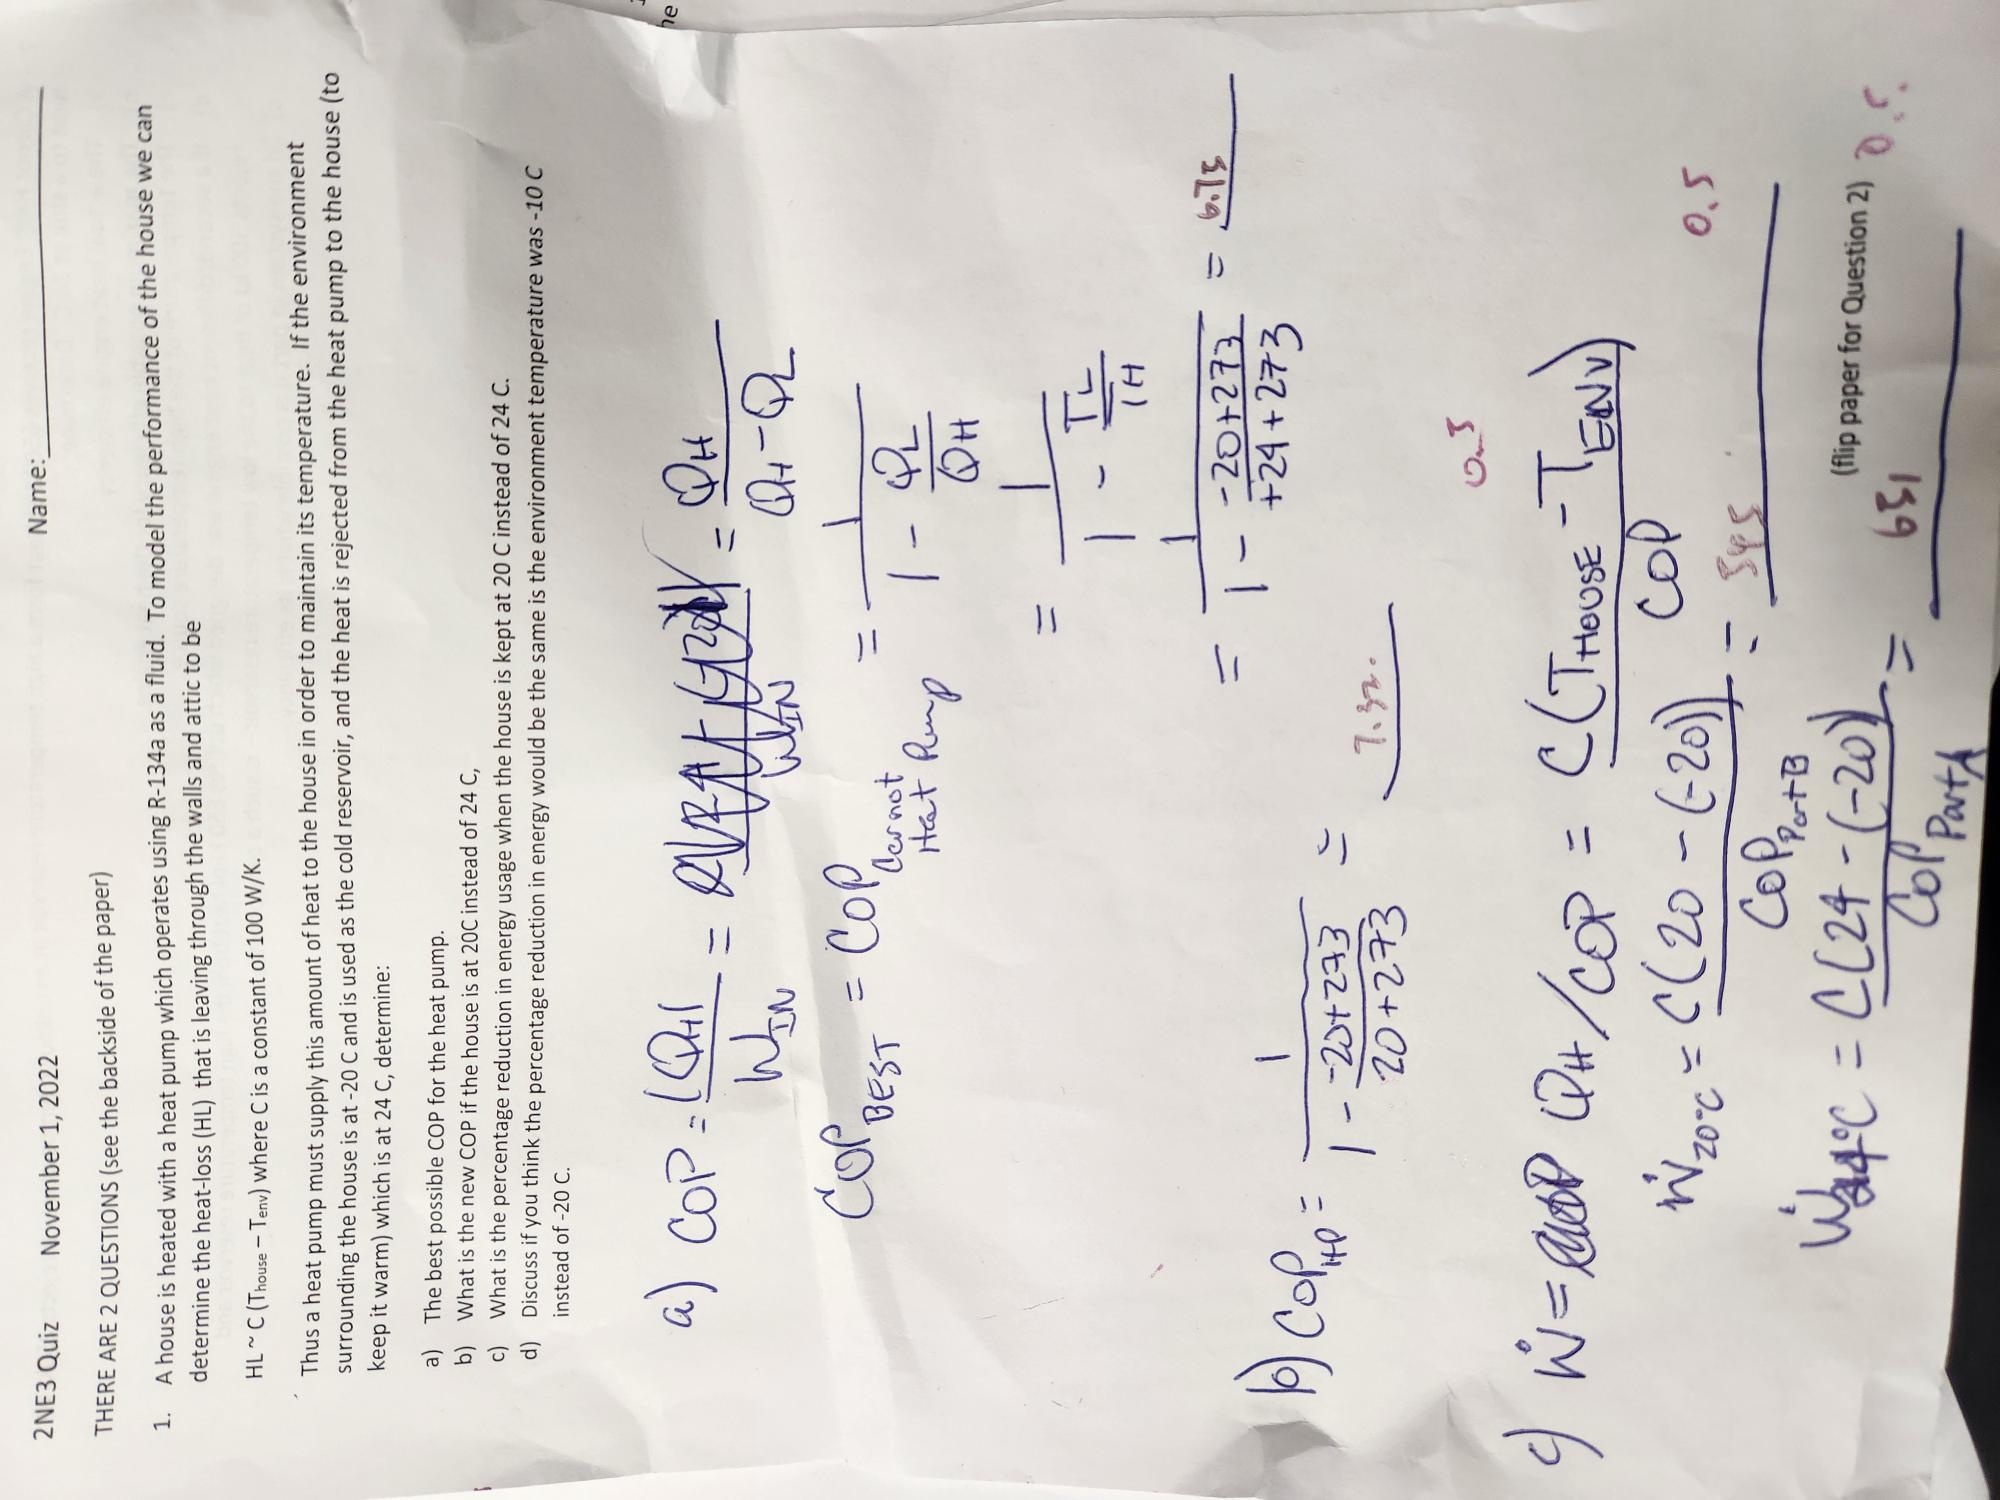 2NE3 Quiz November 1, 2022 Name:
THERE ARE 2 QUESTIONS (see the backside of the paper)
1. A house is heated with a heat pump which operates using R-134a as a fluid. To model the performance of the house we can
determine the heat-loss (HL) that is leaving through the walls and attic to be
HL ~ C (Thouse – Tenv) where C is a constant of 100 W/K.
Thus a heat pump must supply this amount of heat to the house in order to maintain its temperature. If the environment
surrounding the house is at -20 C and is used as the cold reservoir, and the heat is rejected from the heat pump to the house (to
keep it warm) which is at 24 C, determine:
a) The best possible COP for the heat pump.
b) What is the new COP if the house is at 20C instead of 24 C,
c) What is the percentage reduction in energy usage when the house is kept at 20 C instead of 24 C.
d) Discuss if you think the percentage reduction in energy would be the same is the environment temperature was -10 C
instead of -20 C.
a) COP = |QH| / WIN = / WIN = QH / QH - QL
COP BEST = COP Carnot Heat Pump = 1 / 1 - QL / QH
= 1 / 1 - TL / TH
= 1 / 1 - -20+273 / +24+273 = 6.75
b) COP HP = 1 / 1 - -20+273 / 20+273 = 7.32.
0.5
c) Ẇ = QH/COP = C(THOUSE - TENV) / COP
Ẇ20°C = C(20 - (-20)) / COP Part B = 545
0.5
Ẇ24°C = C(24 - (-20)) / COP Part A = 651
(flip paper for Question 2)
0.5.
he